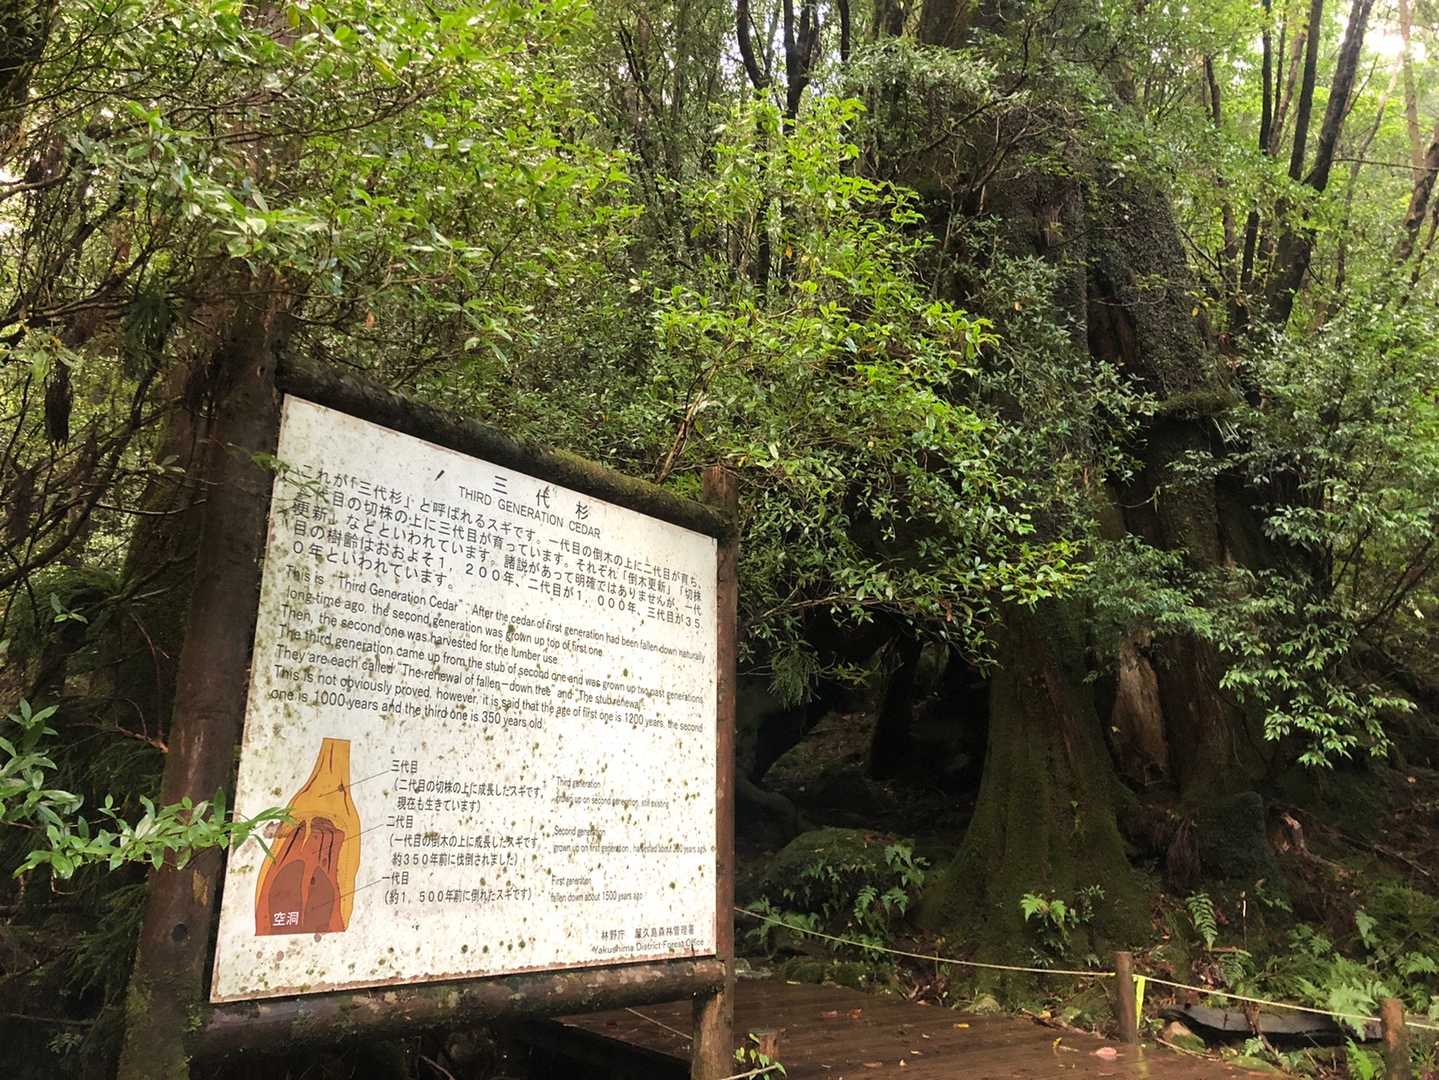 三代杉
THIRD GENERATION CEDAR
これが「三代杉」と呼ばれるスギです。一代目の倒木の上に二代目が育ち、
二代目の切株の上に三代目が育っています。それぞれ「倒木更新」「切株
更新」などといわれています。諸説があって明確ではありませんが、一代
目の樹齢はおおよそ1,200年、二代目が1,000年、三代目が35
0年といわれています。
This is "Third Generation Cedar". After the cedar of first generation had been fallen-down naturally
long-time ago, the second generation was grown up top of first one.
Then, the second one was harvested for the lumber use.
The third generation came up from the stub of second one and was grown up two past generations.
They are each called "The renewal of fallen-down tree" and "The stub renewal".
This is not obviously proved, however, it is said that the age of first one is 1200 years, the second
one is 1000-years and the third one is 350 years old.
三代目
(二代目の切株の上に成長したスギです。
現在も生きています)
Third generation
grown up on second generation, still existing
二代目
(一代目の倒木の上に成長したスギです
約350年前に伐倒されました)
Second generation
grown up on first generation, harvested about 350 years ago
一代目
(約1,500年前に倒れたスギです)
First generation
fallen down about 1500 years ago
空洞
林野庁 屋久島森林管理署
Yakushima District Forest Office